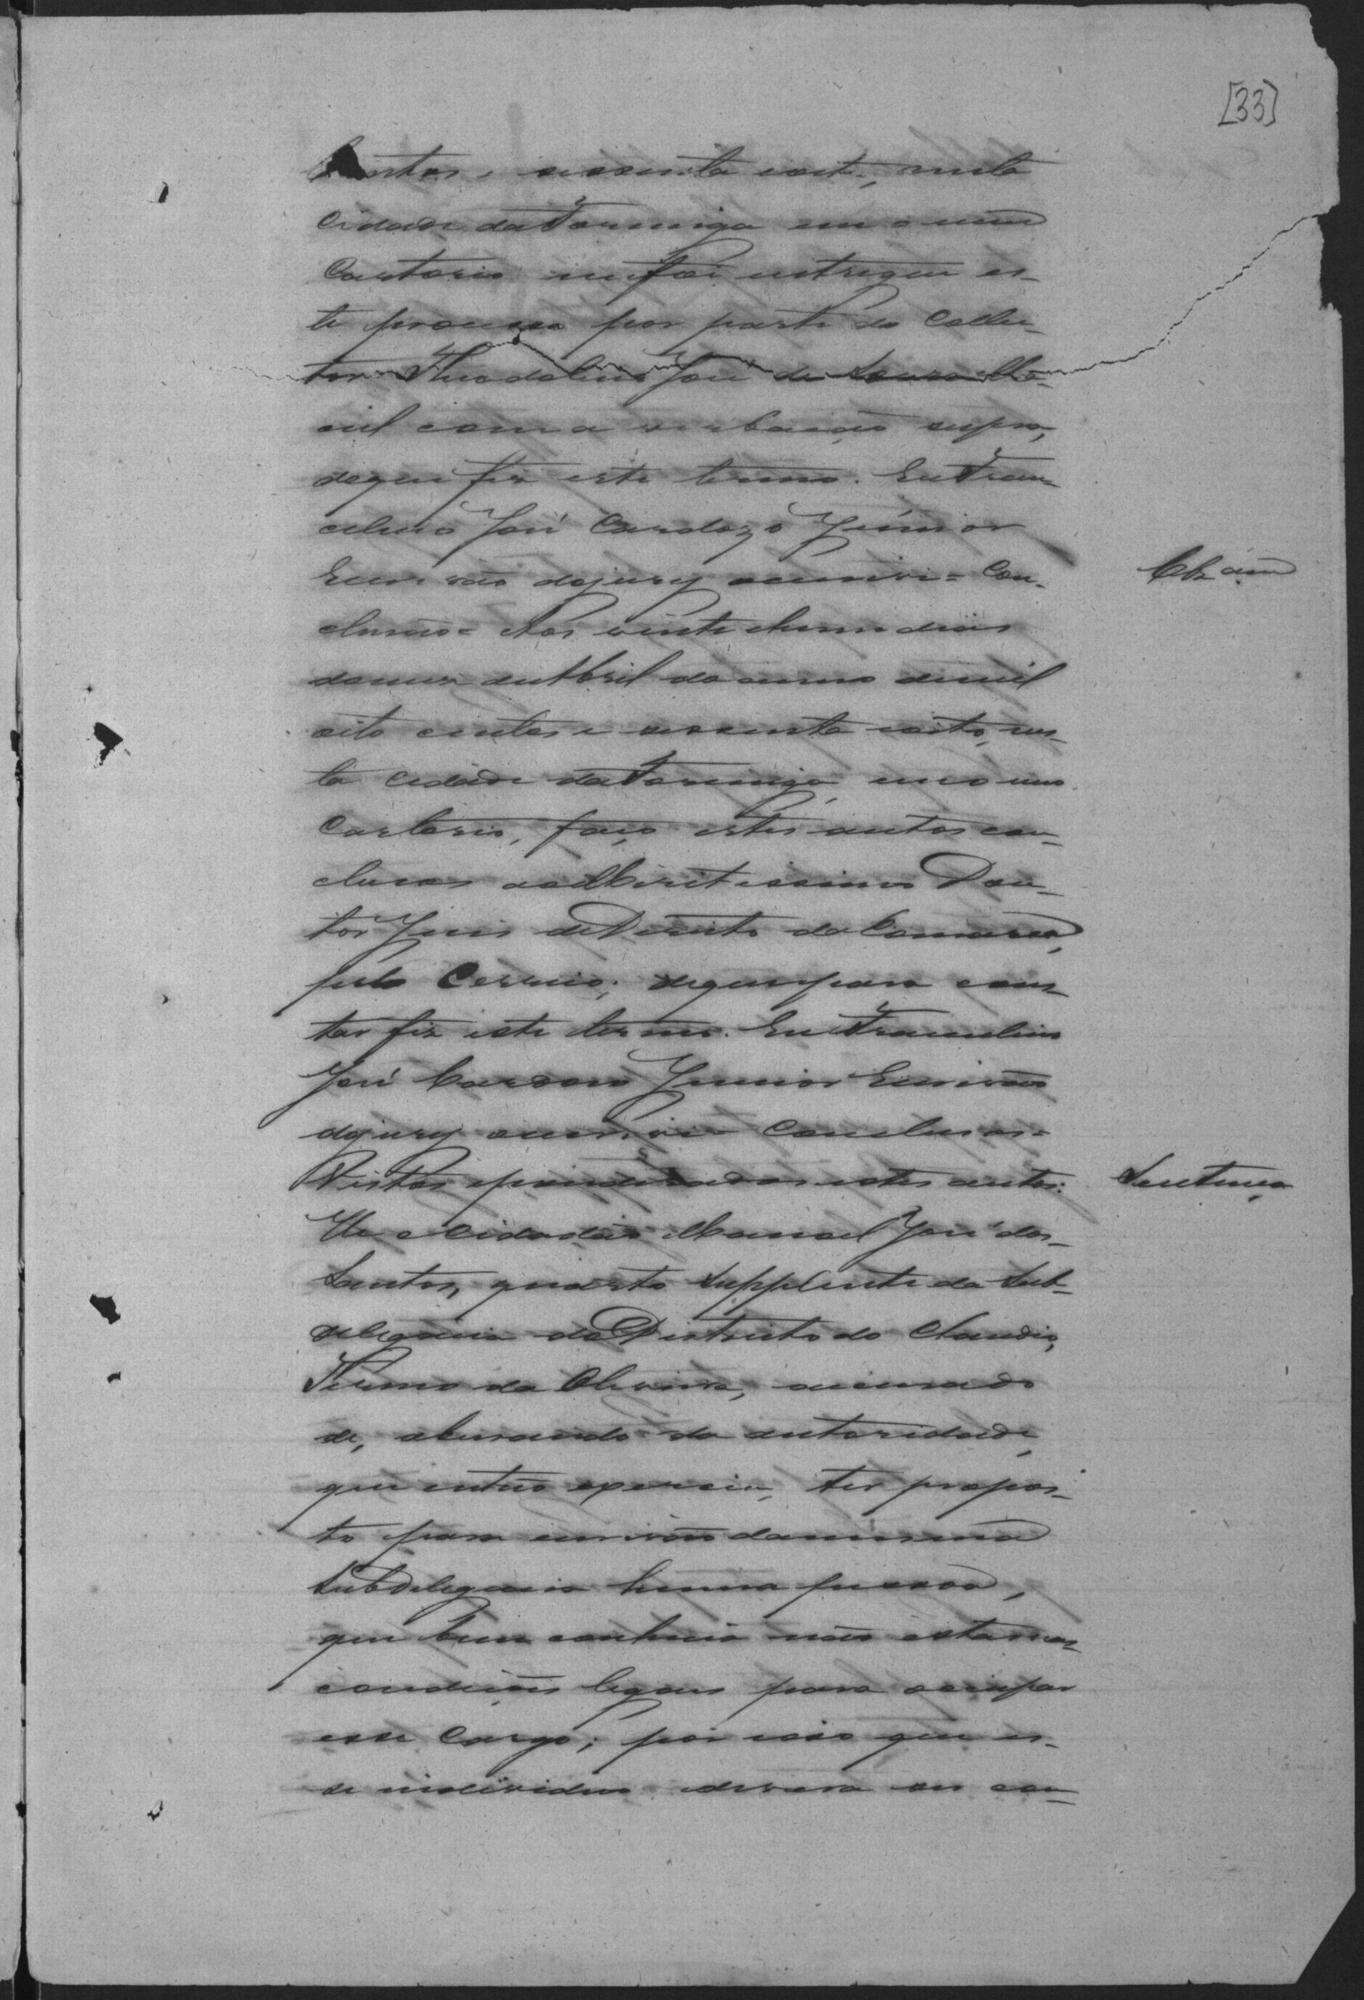 [33]
centos, e sessenta e oito, nesta
cidade da Formiga em o meu
Cartorio me foi entregue es-
te processo por parte do Collec-
tor Theodolino José de Souza Ma-
ciel com a verbação supra,
de que fiz este termo. Eu Fran-
celino José Cardozo Júnior
Escrivão do jury escrevi = Con-
clusão = Aos vinte e hum dias
do mez de Abril do anno de mil
oito centos e sessenta e oito, nes-
ta cidade da Formiga em o meu
Cartorio, faço estes autos con-
clusos ao Meritissimo Dou-
tor Juis de Direito da Comarca,
pelo Correio; de que para cons-
tar fiz este termo. Eu Francelino
José Cardozo Junior Escrivão
do jury escrevi = Conclusos =
Vistos e examinados estes autos:
He o Cidadão Manoel José dos
Santos, quarto Supplente da Sub-
delegacia do Districto do Claudio,
Termo da Oliveira, accusado
de, abusando da autoridade,
que então exercia, ter propos-
to para escrivão da mesma
Subdelegacia huma pessoa,
que bem conhecia não estar nas
condições legaes para occupar
esse cargo; por isso que es-
se individuo devera ser con-
Clzam
Sentença